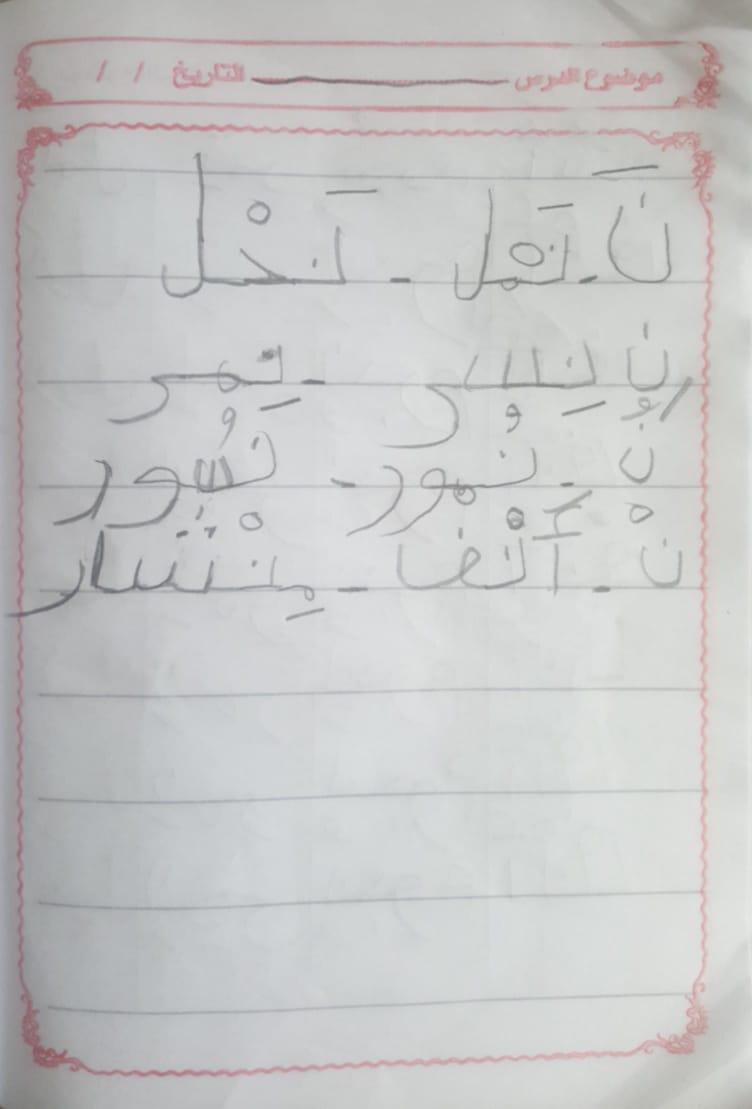 موضوع الدرس ________ التاريخ / /
نَ - نَمْل - نَخْل
نِ نِسر - نِمر
نُ - نُمور - نُسور
نْ - أَنْف - مِنْشار